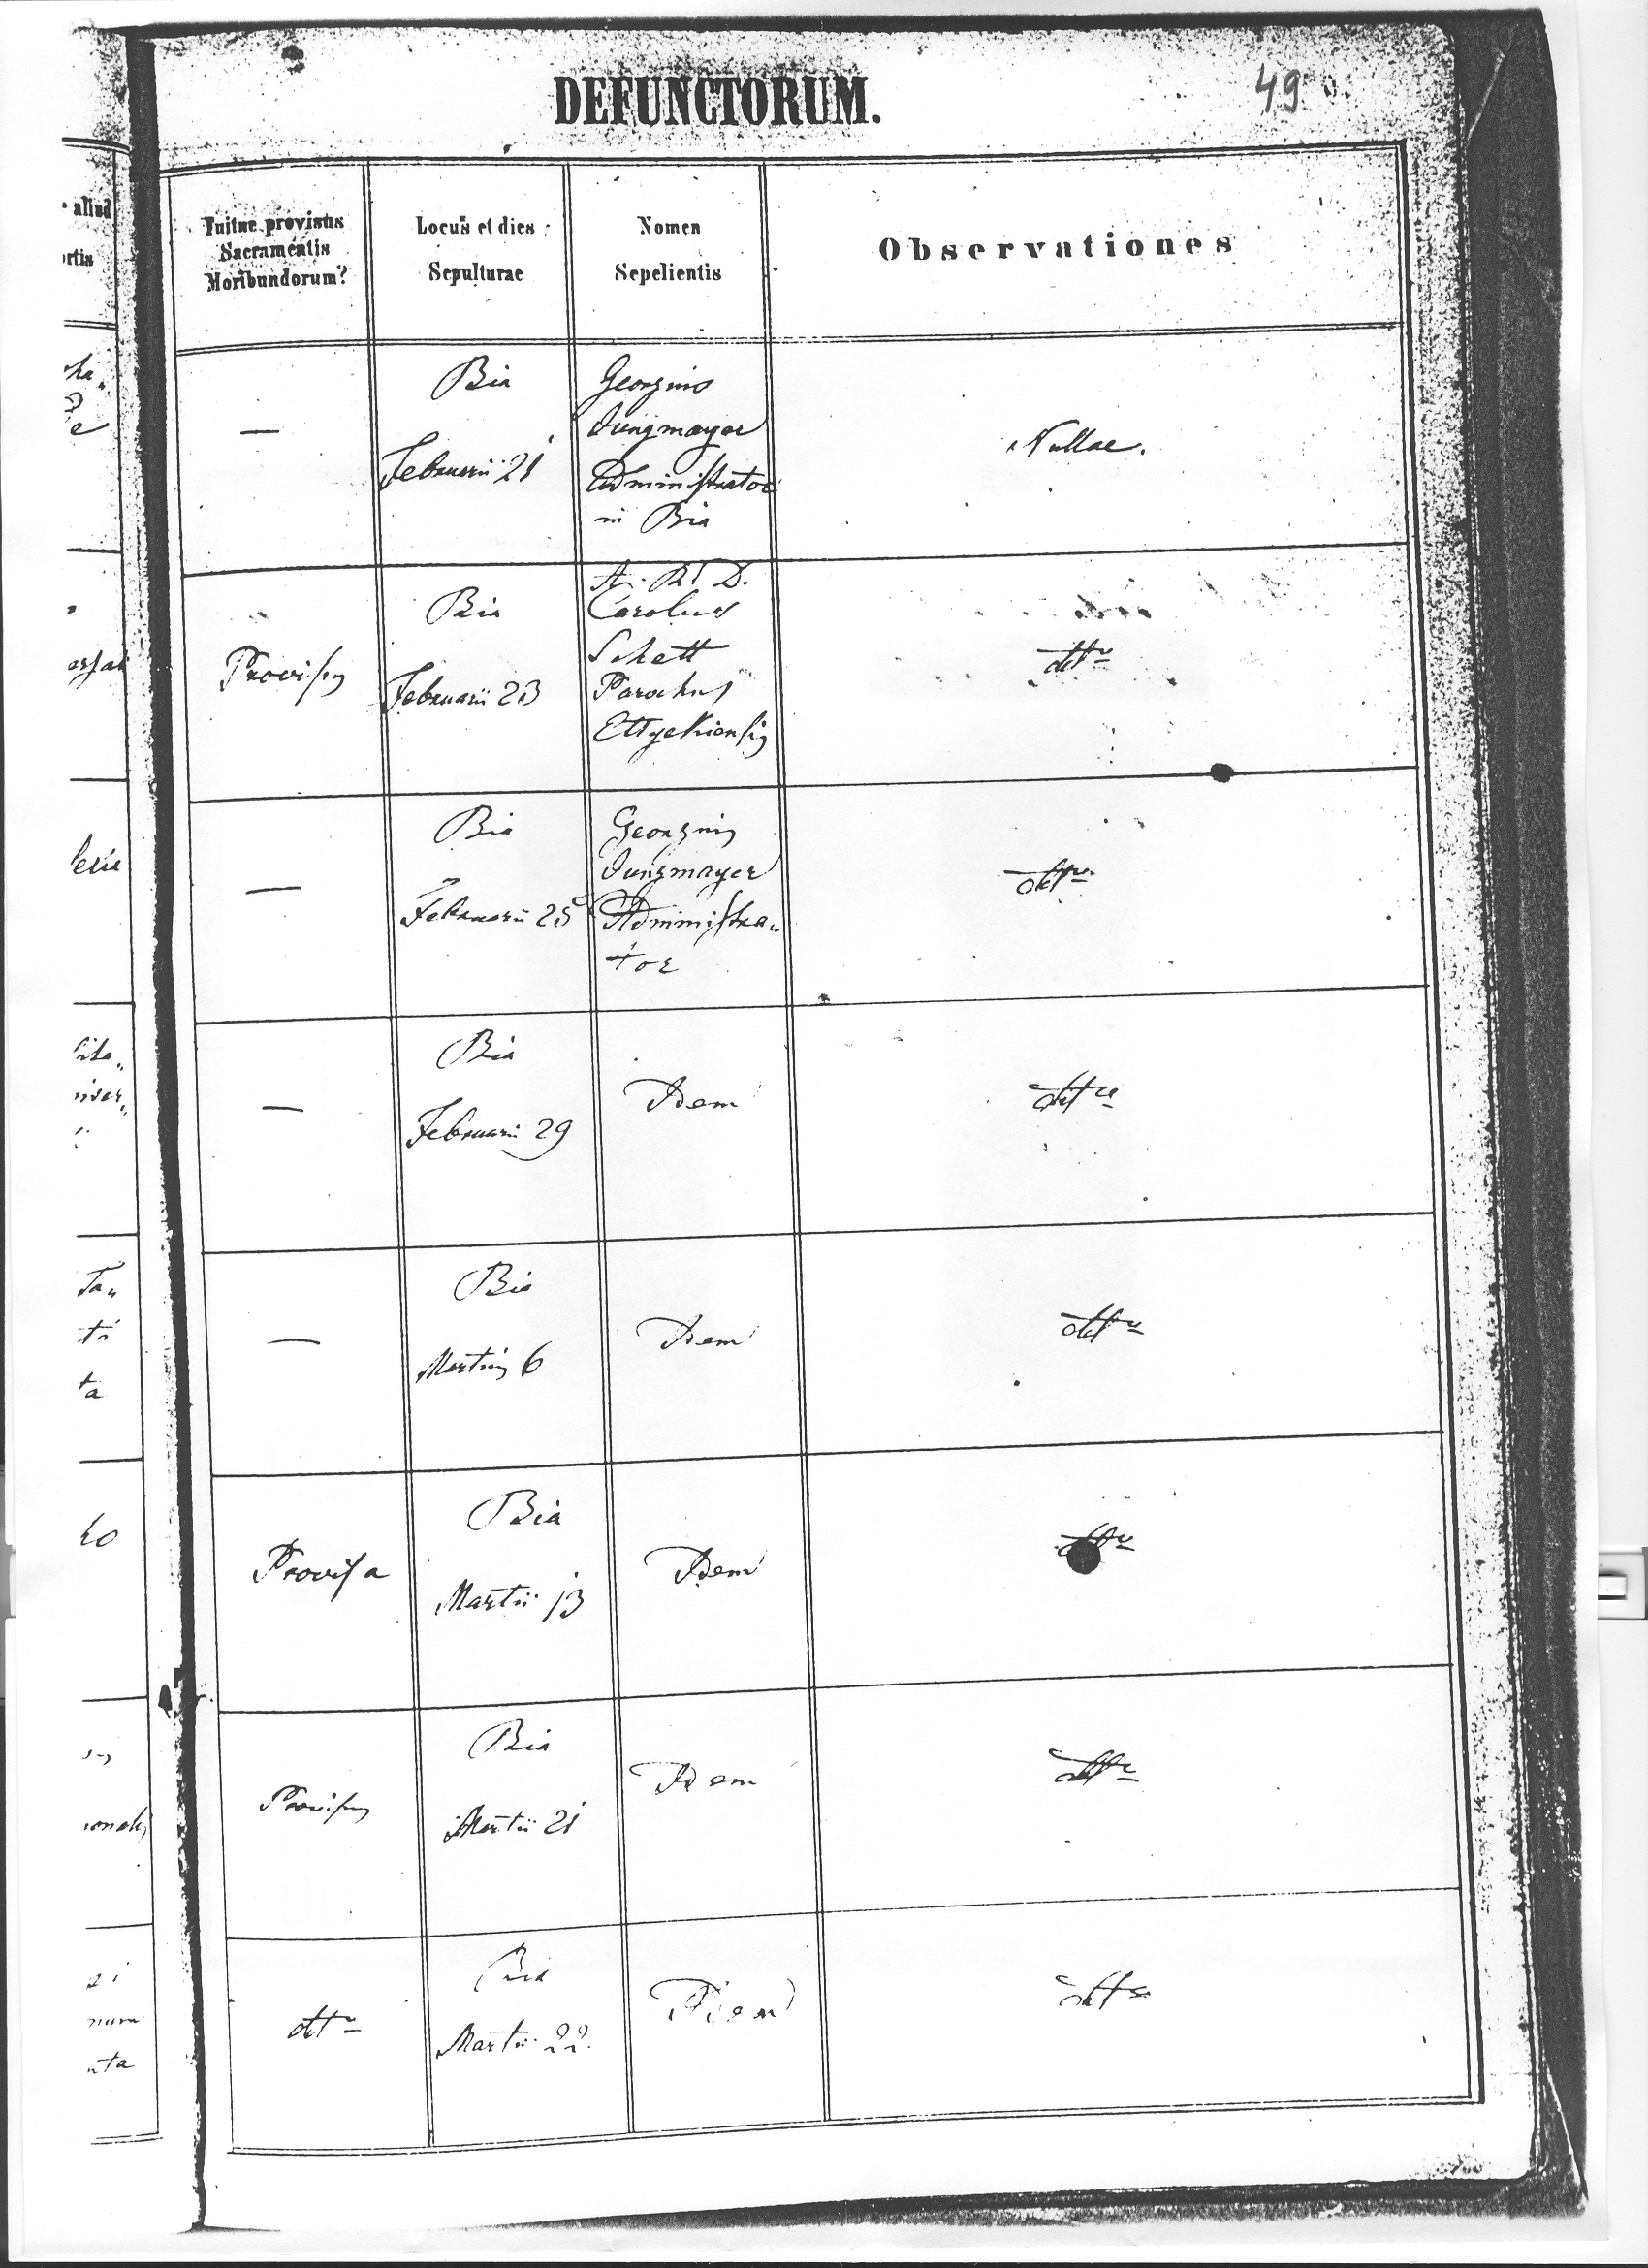 DEFUNCTORUM.
49
aliud
ortis
Fuitne provisus
Sacramentis
Moribundorum?
Locus et dies
Sepulturae
Nomen
Sepelientis
Observationes
—
Bia
Februarii 21
Georgius
Jungmayer
Administrator
in Bia
Nullae.
Provisus
Bia
Februarii 23
A. R. D.
Carolus
Schett
Parochus
Ettyekiensis
dtto
—
Bia
Februarii 25
Georgius
Jungmayer
Administra„
tor
dtto
—
Bia
Februarii 29
Idem
dtto
—
Bia
Martii 6
Idem
dtto
Provisa
Bia
Martii 13
Idem
dtto
Provisus
Bia
Martii 21
Idem
dtto
dtto
Bia
Martii 22.
Idem
dtto